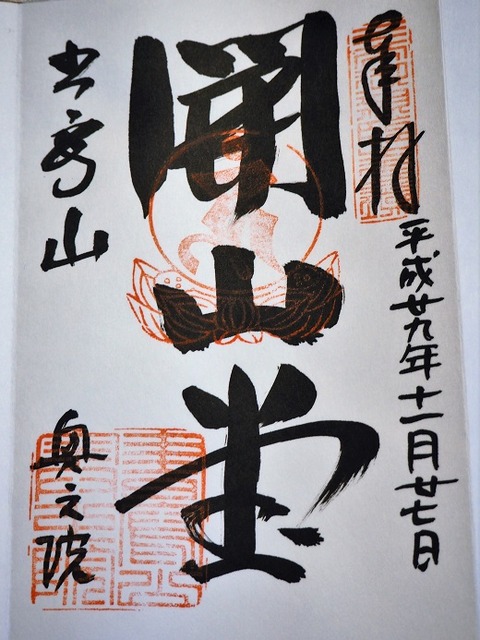 奉拝
平成廿九年十一月廿七日
開山堂
書写山
奥之院